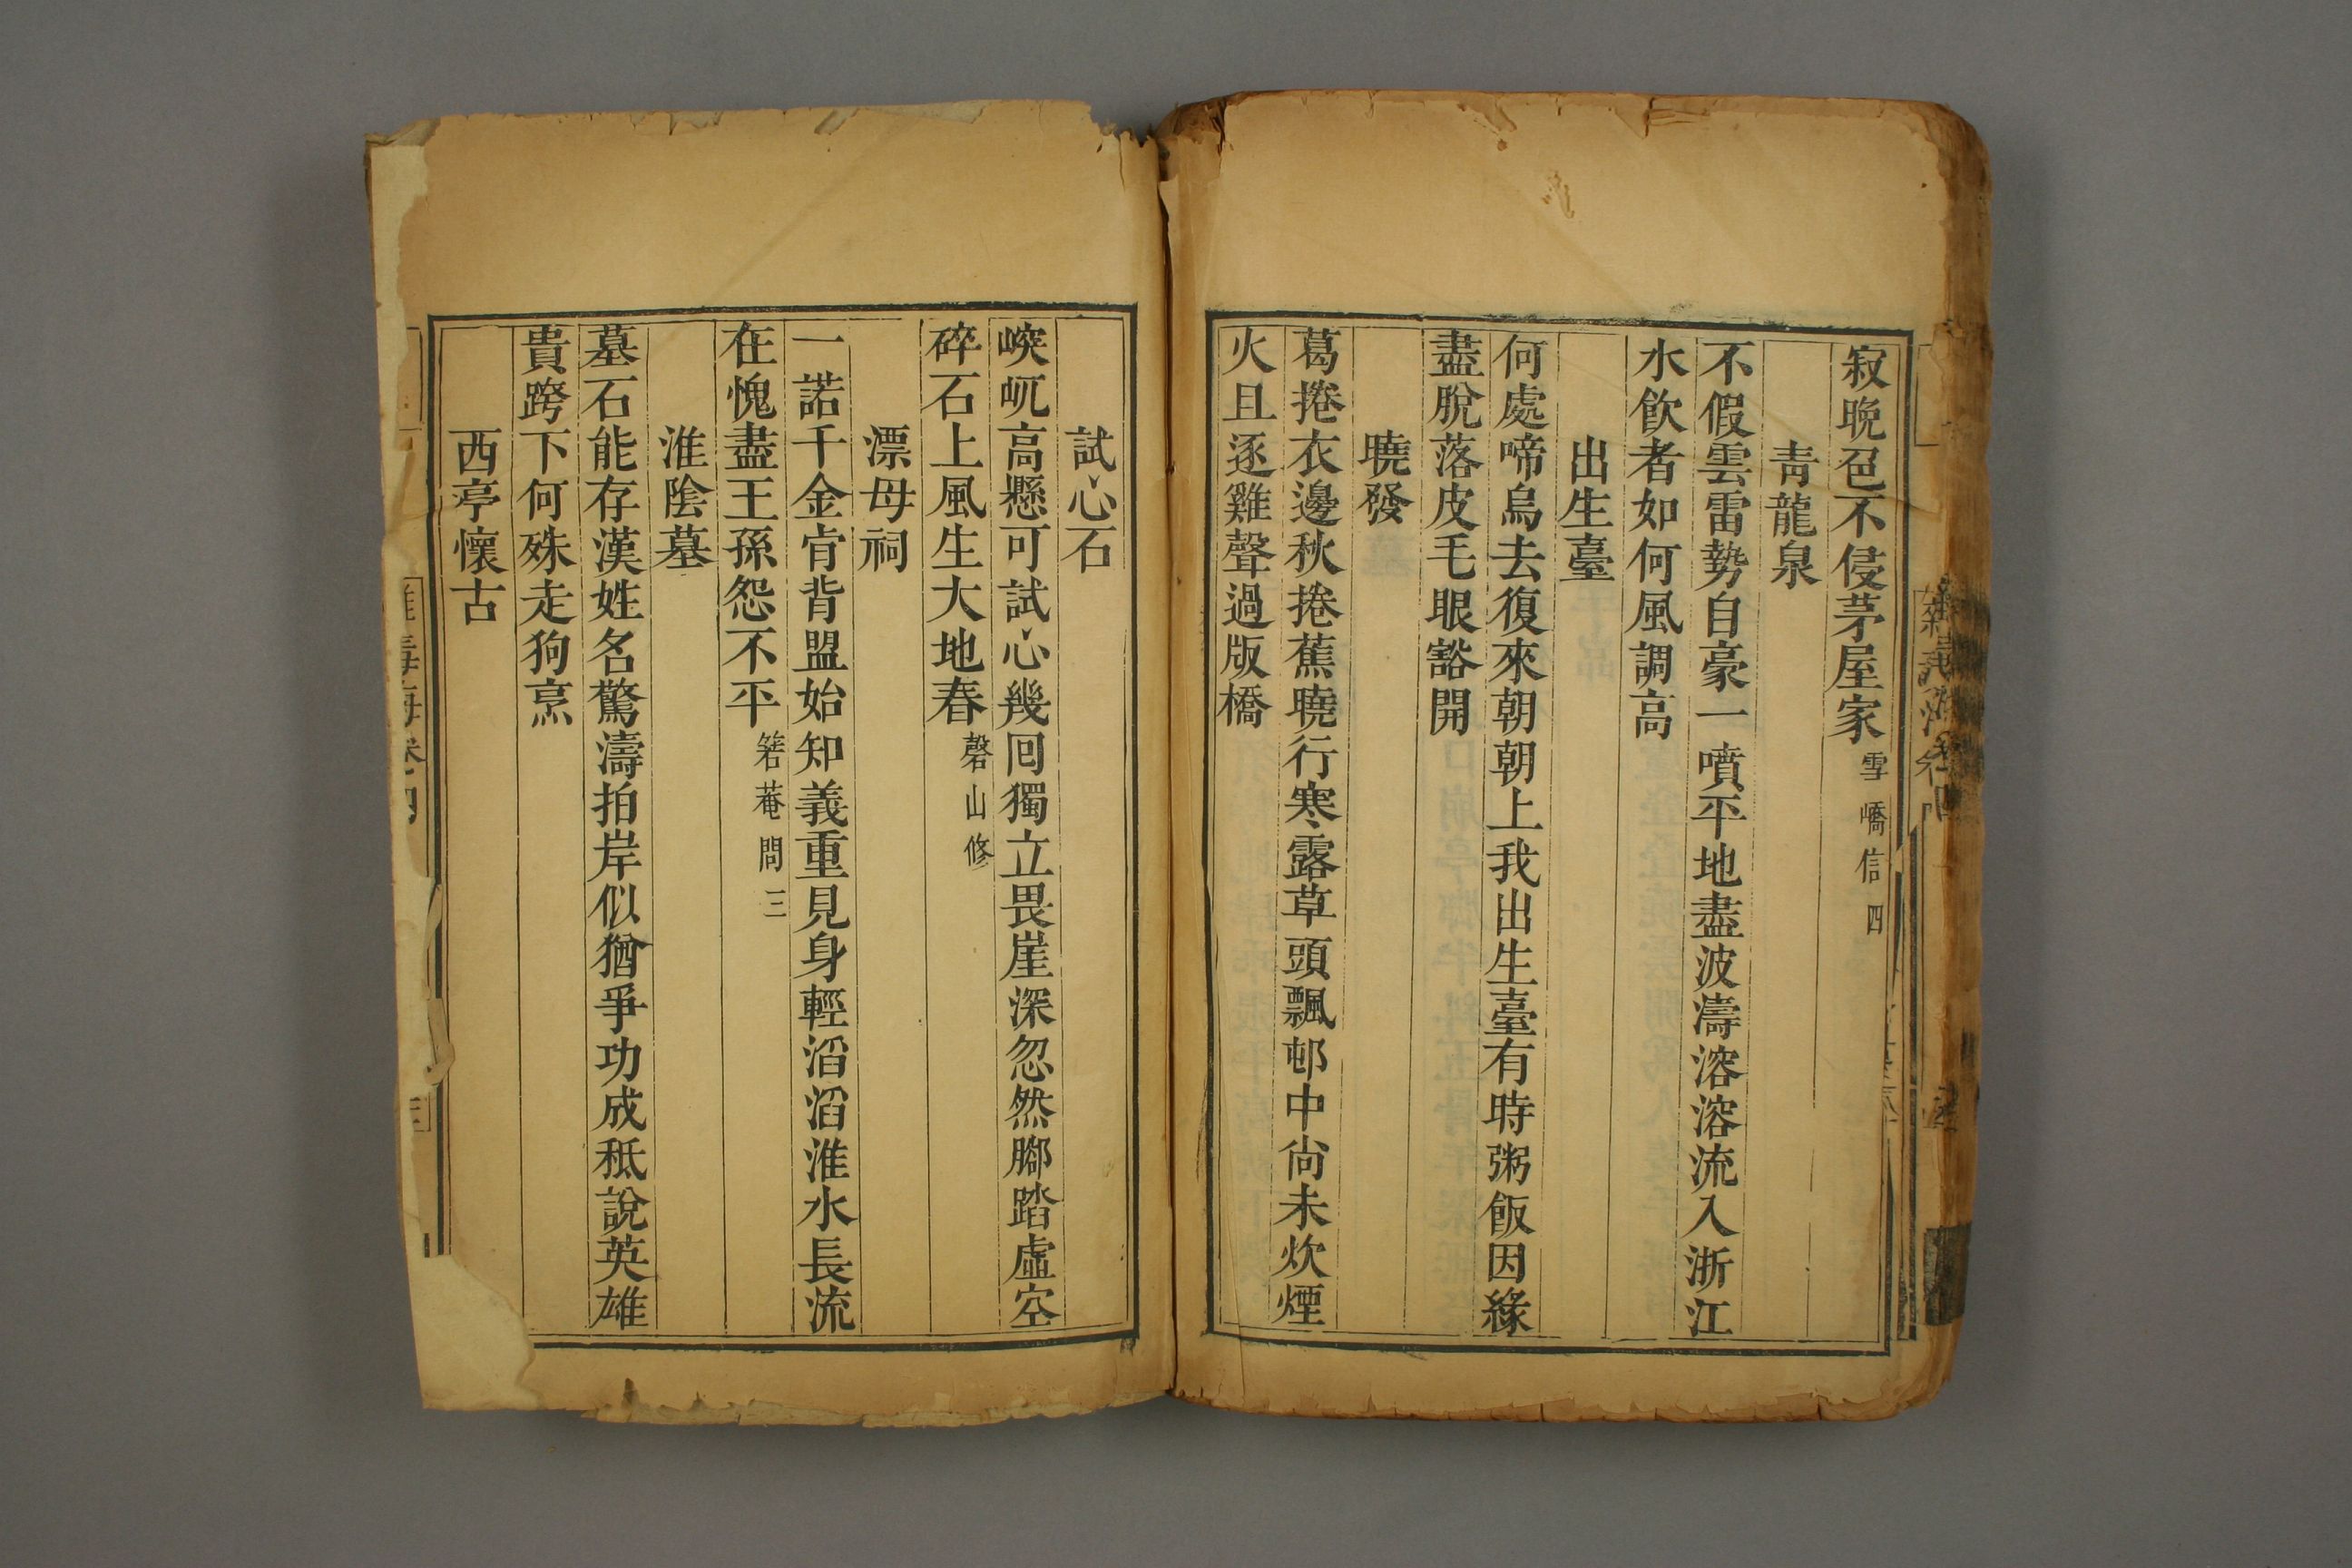 寂晩色不侵茅屋家 雪嶠信四
青龍泉
不假雲雷勢自豪一噴平地盡波濤溶溶流入浙江
水飲者如何風調高
出生臺
何處啼烏去復來朝朝上我出生臺有時粥飯因緣
盡脫落皮毛眼豁開
曉發
葛捲衣邊秋捲蕉曉行寒露草頭飄邨中尙未炊煙
火且逐雞聲過版橋
試心石
崚屼高懸可試心幾回獨立畏崖深忽然腳踏虛空
碎石上風生大地春 磬山修
漂母祠
一諾千金肯背盟始知義重見身輕滔滔淮水長流
在愧盡王孫怨不平 箬菴問三
淮陰墓
墓石能存漢姓名驚濤拍岸似猶爭功成秪說英雄
貴跨下何殊走狗烹
西亭懷古